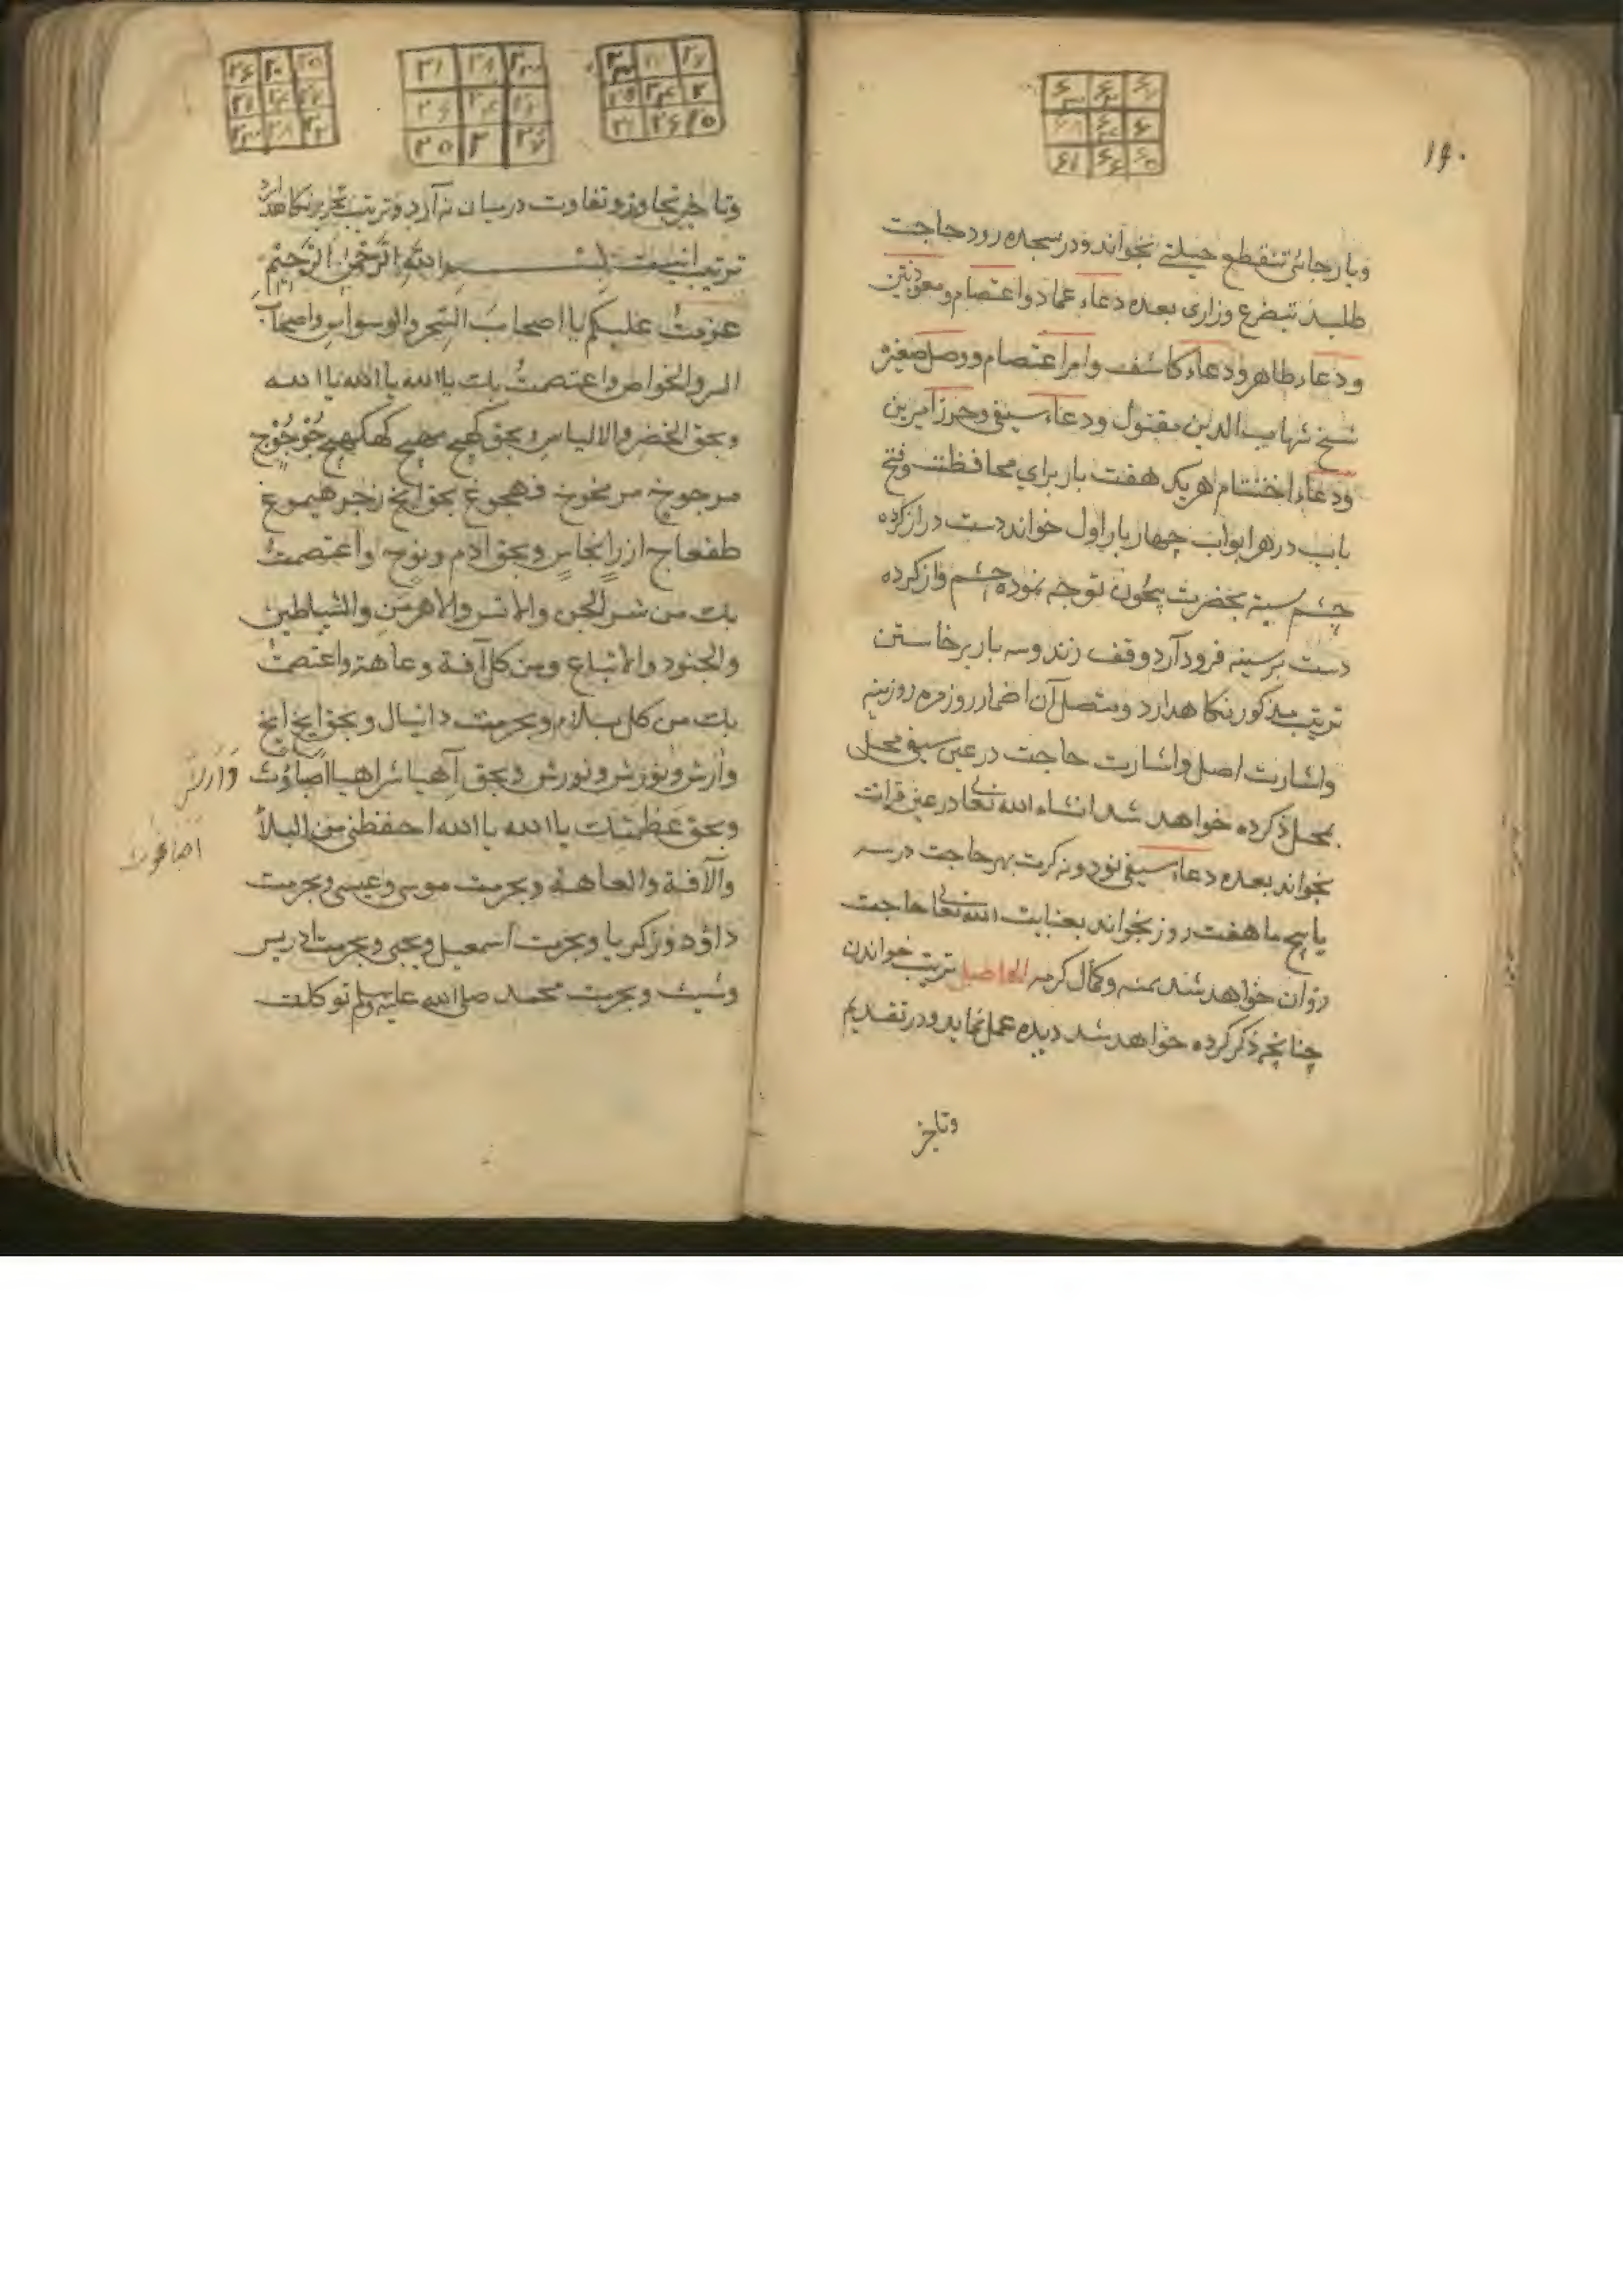 ۱۴۰
و یا رجائی تنقطع حیلتی بخواند و در سجده رود حاجت
طلبد بتضرع وزاری بعده دعاء عماد واعتصام ومعوذتین
ودعاء طاهر ودعاء کاشف وامر اعتصام ووصل صغیر
شیخ شهاب الدین مقتول ودعاء سیفی وحرز امیرین
ودعاء اختتام هریک هفت بار برای محافظت وفتح
باب در هر ابواب چهار بار اول خواند دست دراز کرده
چشم سینه بحضرت بیچون توجه نموده چشم واز کرده
دست بر سینه فرود آرد وقف زند وسه بار برخاستن
ترتیب مذکور نکاهدارد ومتصل آن اضمار روزمره روزینه
واشارت اصل واشارت حاجت در عین سیفی محل
بمحل ذکرده خواهد شد انشاء الله تعا در عین قرات
بخواند بعده دعاء سیفی نود ونه کرت بهر حاجت در سه
یا پنج یا هفت روز بخواند بعنایت الله تعا حاجت
روان خواهد شد بمنه وکمال کرمه الحاصل ترتیب خواندن
چنانچه ذکر کرده خواهد شد دیده عمل نماید ودر تقدیم
وتاخیر
وتاخیر تجاوز وتفاوت درمیان نه آرد وترتیب تحریر نکاهدارد
ترتیب اینست بسم الله الرحمن الرحیم
عزمت علیکم یا اصحاب السحر والوسواس واصحاب
السر والخواص واعتصمت بک یا الله یا الله یا الله
وبحق الخضر والالیاس وبحق کهیج مهیج کهکهیج جوجوج
مرجوخ مرنخوخ فهجوغ بحق ایخ زنجر هیموغ
طفعاج ازرانجاس وبحق ادم ونوح واعتصمت
بک من شر الجن والانس والاهرمن والشیاطین
والجنود والاتباع ومن کل آفة وعاهة واعتصمت
بک من کل بلاء وبحرمت دانیال وبحق ایخ ایخ
وارش ونوزش ونورش وبحق آهیا شراهیا اصباؤث
وبحق عظمتک یا الله یا الله احفظنی من البلآ
والآفة والعاهة وبحرمت موسی وعیسی وبحرمت
داؤد وزکریا وبحرمت اسمعیل ویحیی وبحرمت ادریس
وشیث وبحرمت محمد صلی الله علیه وسلم توکلت